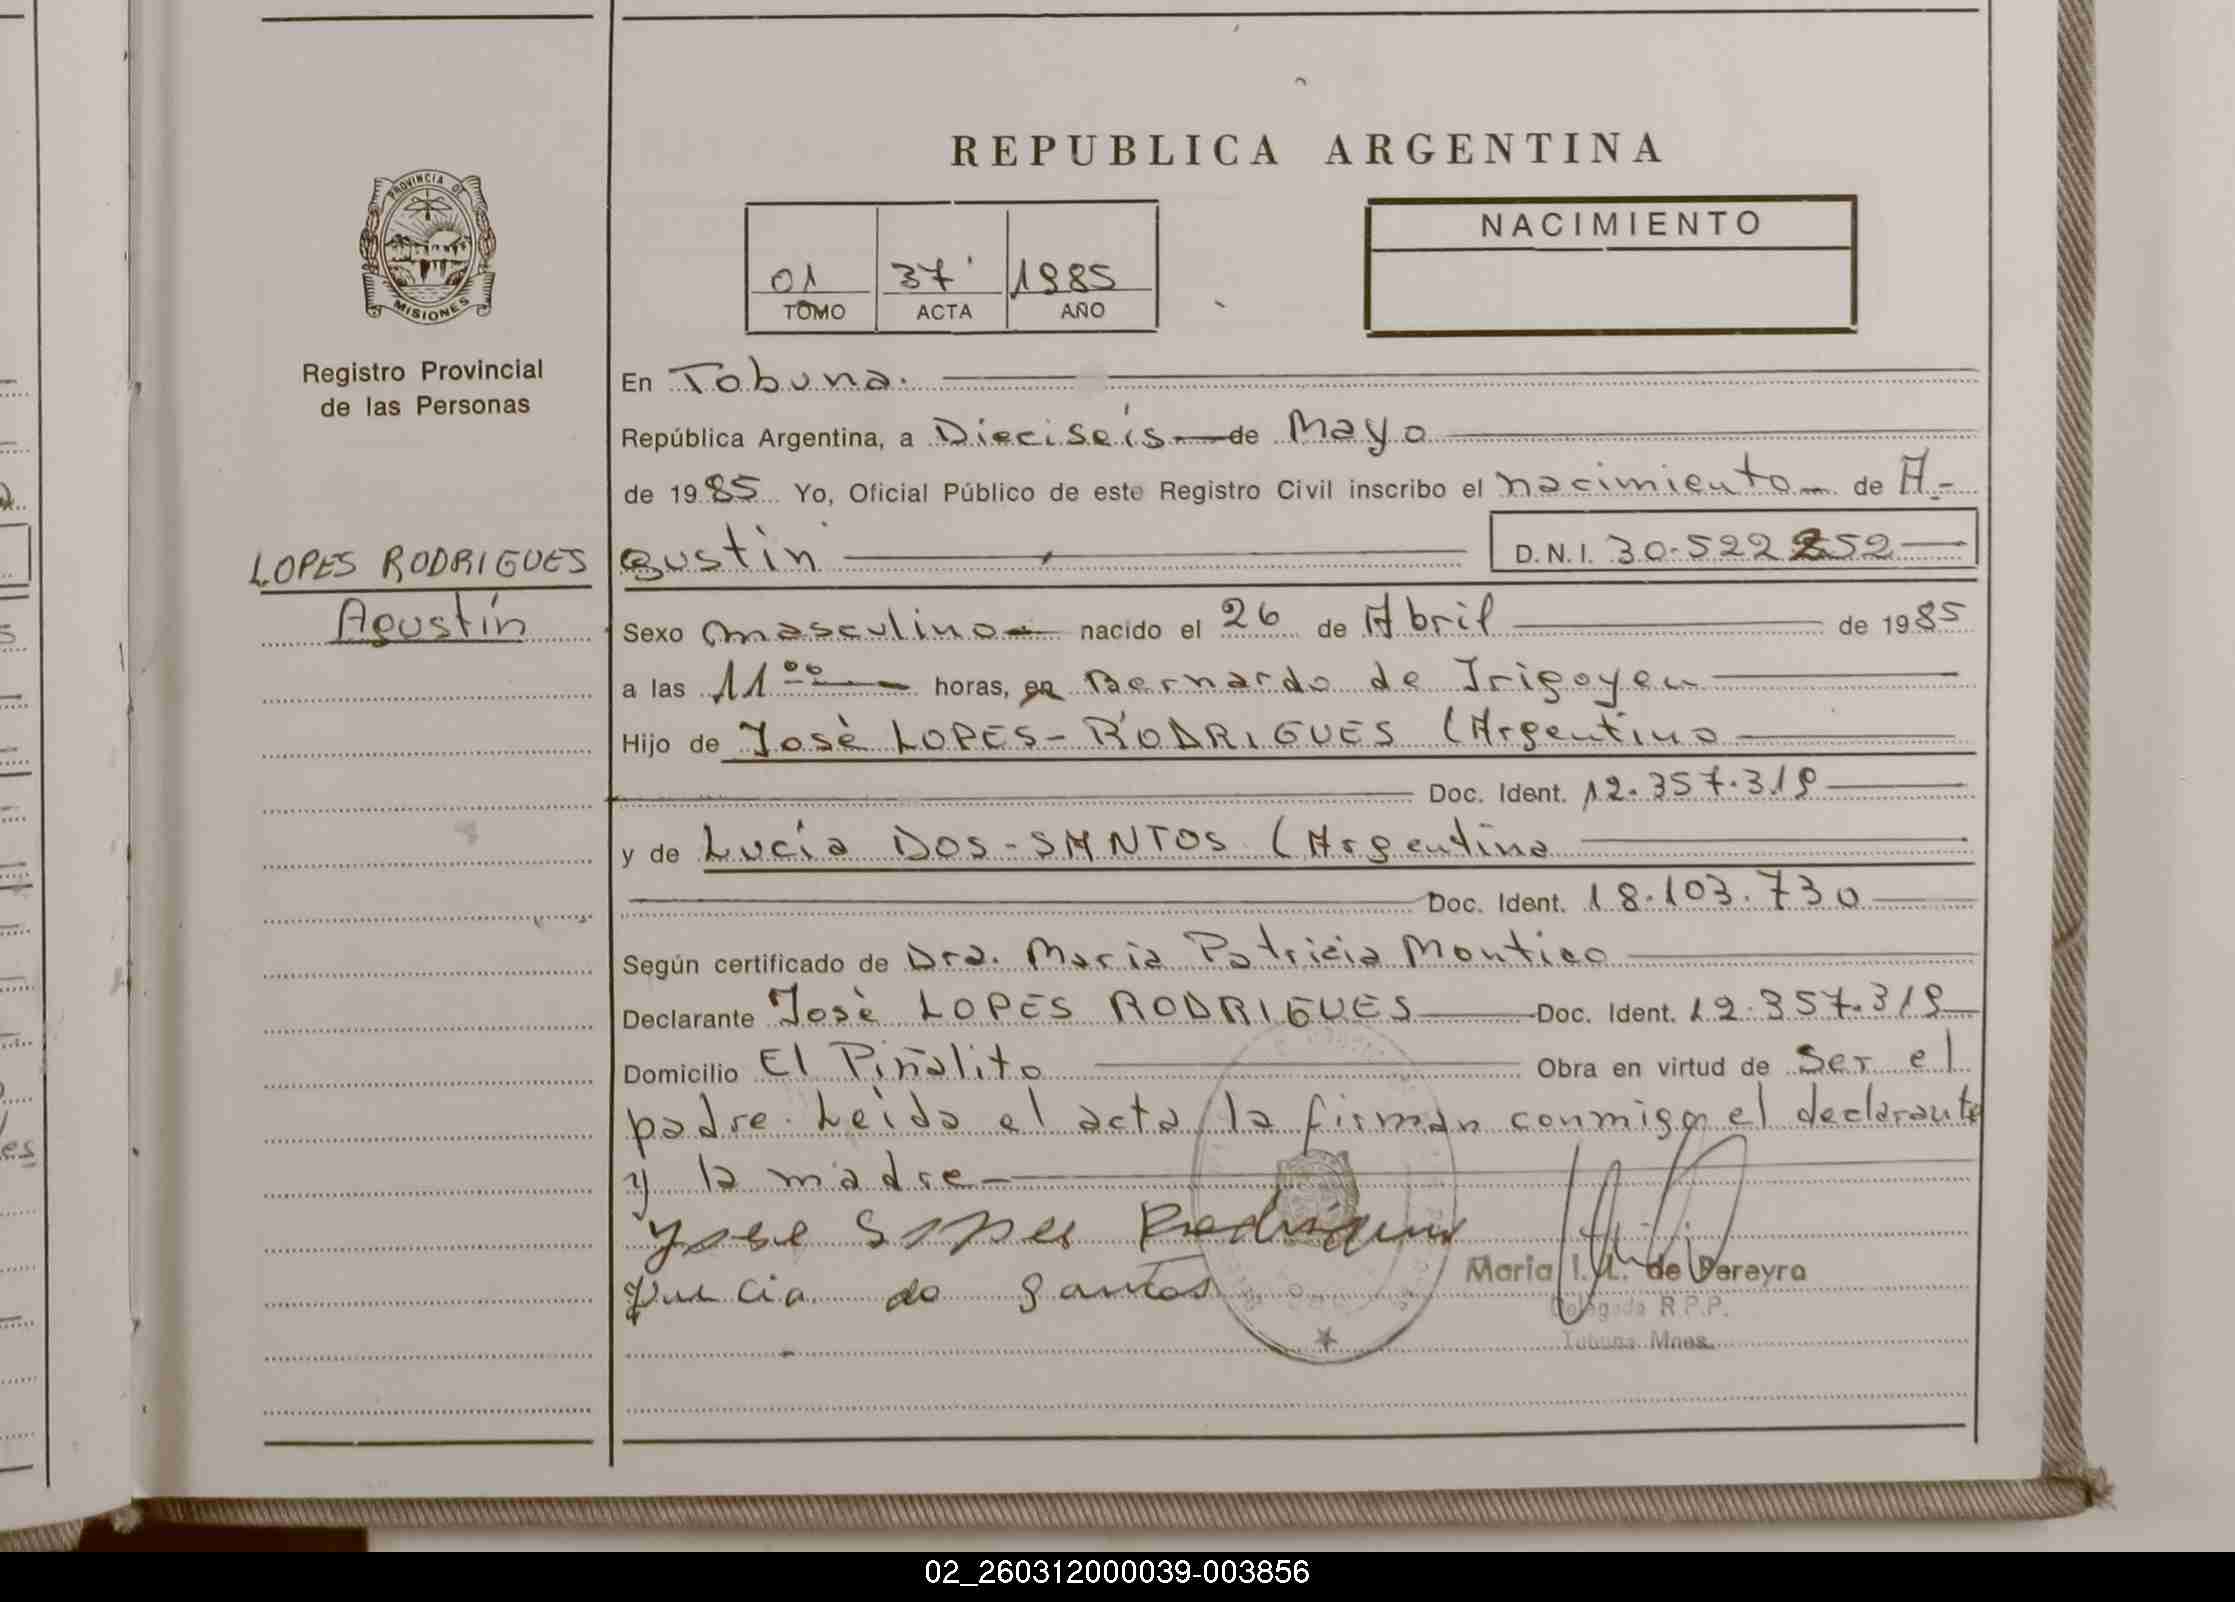 REPUBLICA ARGENTINA
PROVINCIA DE
MISIONES
Registro Provincial
de las Personas
01 37 1985
TOMO ACTA AÑO
NACIMIENTO
En Tobuna.
República Argentina, a Dieciseís de Mayo
de 1985 Yo, Oficial Público de este Registro Civil inscribo el nacimiento de A-
LOPES RODRIGUES
Agustín
gustin D.N.I. 30.522 252
Sexo masculino nacido el 26 de Abril de 1985
a las 11 oo horas, en Bernardo de Irigoyen
Hijo de Josè LOPES-RODRIGUES (Argentino
Doc. Ident. 12.357.319
y de Lucía DOS-SANTOS (Argentina
Doc. Ident. 18.103.730
Según certificado de Dra. Maria Patricia
Declarante Josè LOPES RODRIGUES Doc. Ident. 12.357.319
Domicilio El Piñalito Obra en virtud de ser el
padre. Leida el acta la firman conmigo el declarante
y la madre
Lopes Rodrigues
do Santos
Maria I. L. de Pereyra
Delegada R.P.P.
Tobuna Mnes.
02_260312000039-003856